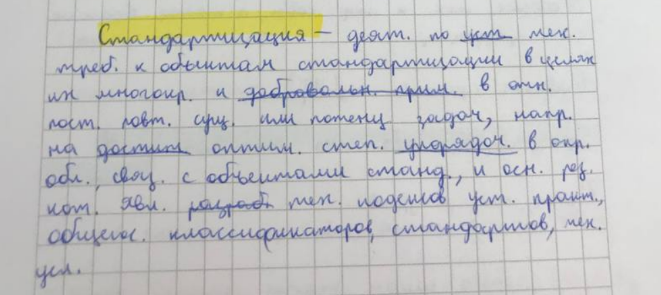 Стандартизация – деят. по уст. тех.
треб. к объектам стандартизации в целях
их многокр. и добровольн. прим. в отн.
пост. повт. сущ. или потенц. задач, напр.
на достиж оптим. степ. упорядоч. в опр.
обл., связ. с объектами станд., и осн. рез.
кот. явл. разраб тех. кодексов уст. практ.,
общегос. классификаторов, стандартов, тех.
усл.